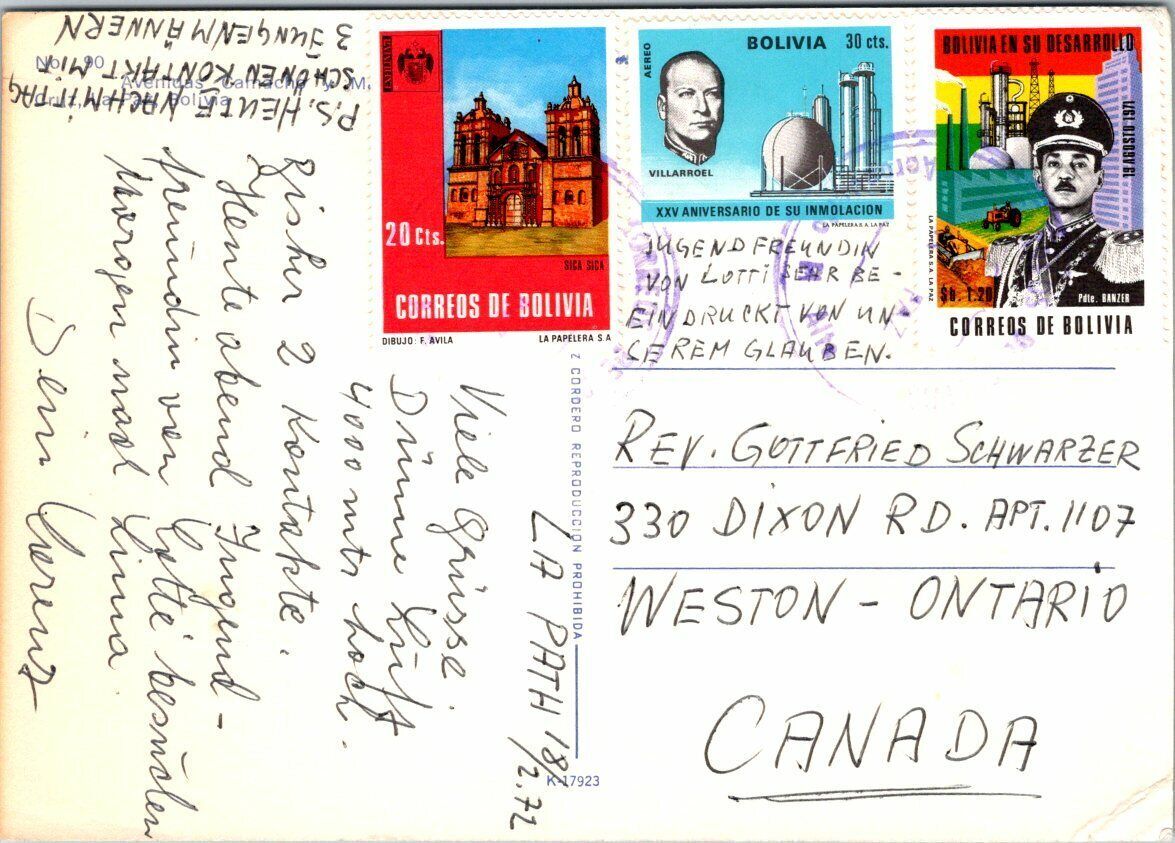 LA PATH 18/2.72
Viele Grüsse.
Dünne Luft
4000 mts hoch.
Bisher 2 Kontakte.
Heute abend Jugend-
freundin von Lotti besuchen
Morgen nach Lima.
Dein Lorenz
P.S. HEUTE NACHMITTAG
SCHÖNEN KONTAKT MIT
3 JUNGEN MÄNNERN
No. 90
Avenidas Camacho y M.
Cruz, La Paz, Bolivia
BOLIVIA
20 Cts.
SICA SICA
CORREOS DE BOLIVIA
DIBUJO: F. AVILA LA PAPELERA S.A.
AEREO
BOLIVIA 30 cts.
VILLARROEL
XXV ANIVERSARIO DE SU INMOLACION
LA PAPELERA S.A. LA PAZ
BOLIVIA EN SU DESARROLLO
19 AGOSTO 1971
LA PAPELERA S.A. LA PAZ
$b. 1.20
Pdte. BANZER
CORREOS DE BOLIVIA
JUGENDFREUNDIN
VON LOTTI SEHR BE-
EINDRUCKT VON UN-
SEREM GLAUBEN.
Z CORDERO REPRODUCCION PROHIBIDA
K-17923
REV. GOTTFRIED SCHWARZER
330 DIXON RD. APT. 1107
WESTON - ONTARIO
CANADA